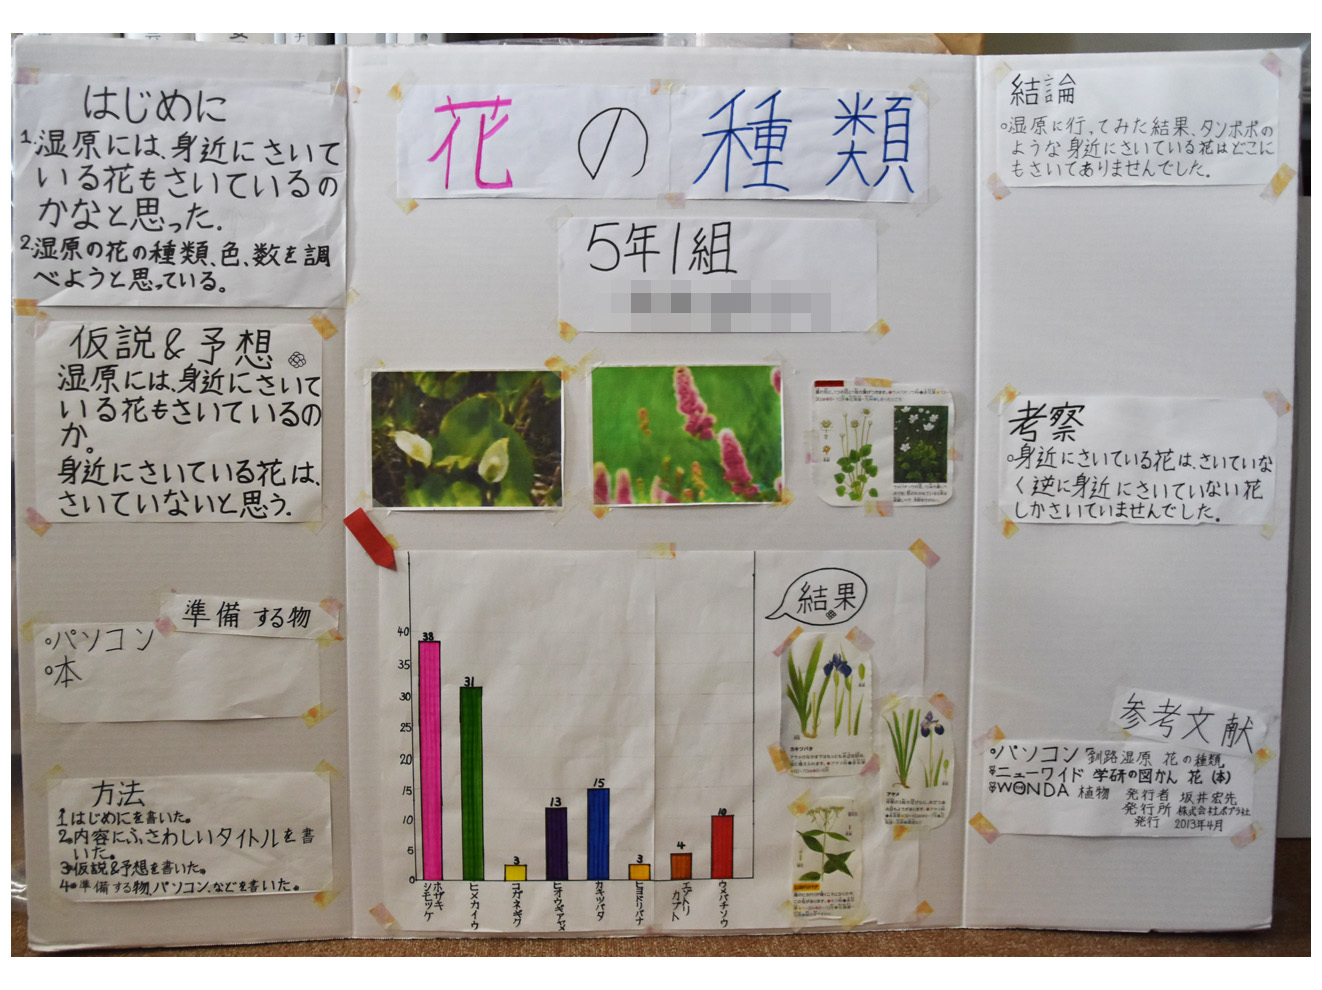 はじめに
1.湿原には、身近にさいて
いる花もさいているの
かなと思った。
2.湿原の花の種類、色、数を調
べようと思っている。
仮説&予想
湿原には、身近にさいて
いる花もさいているの
か。
身近にさいている花は、
さいていないと思う。
準備する物
パソコン
本
方法
1.はじめにを書いた。
2.内容にふさわしいタイトルを書
いた。
3.仮説&予想を書いた。
4.準備する物、パソコン、などを書いた。
花の種類
5年1組
結果
40
35
30
25
20
15
10
5
0
38
31
3
13
15
3
4
10
ホザキ
シモツケ
ヒメカイウ
コガネギク
ヒオウギアヤメ
カキツバタ
ヒヨドリバナ
エゾトリ
カブト
ウメバチソウ
カキツバタ
アヤメ
結論
湿原に行ってみた結果、タンポポの
ような身近にさいている花はどこに
もさいてありませんでした。
考察
身近にさいている花は、さいていな
く逆に身近にさいていない花
しかさいていませんでした。
参考文献
パソコン 釧路湿原 花の種類
ニューワイド 学研の図かん 花(本)
WONDA 植物 発行者 坂井宏先
発行所 株式会社ポプラ社
発行 2013年4月